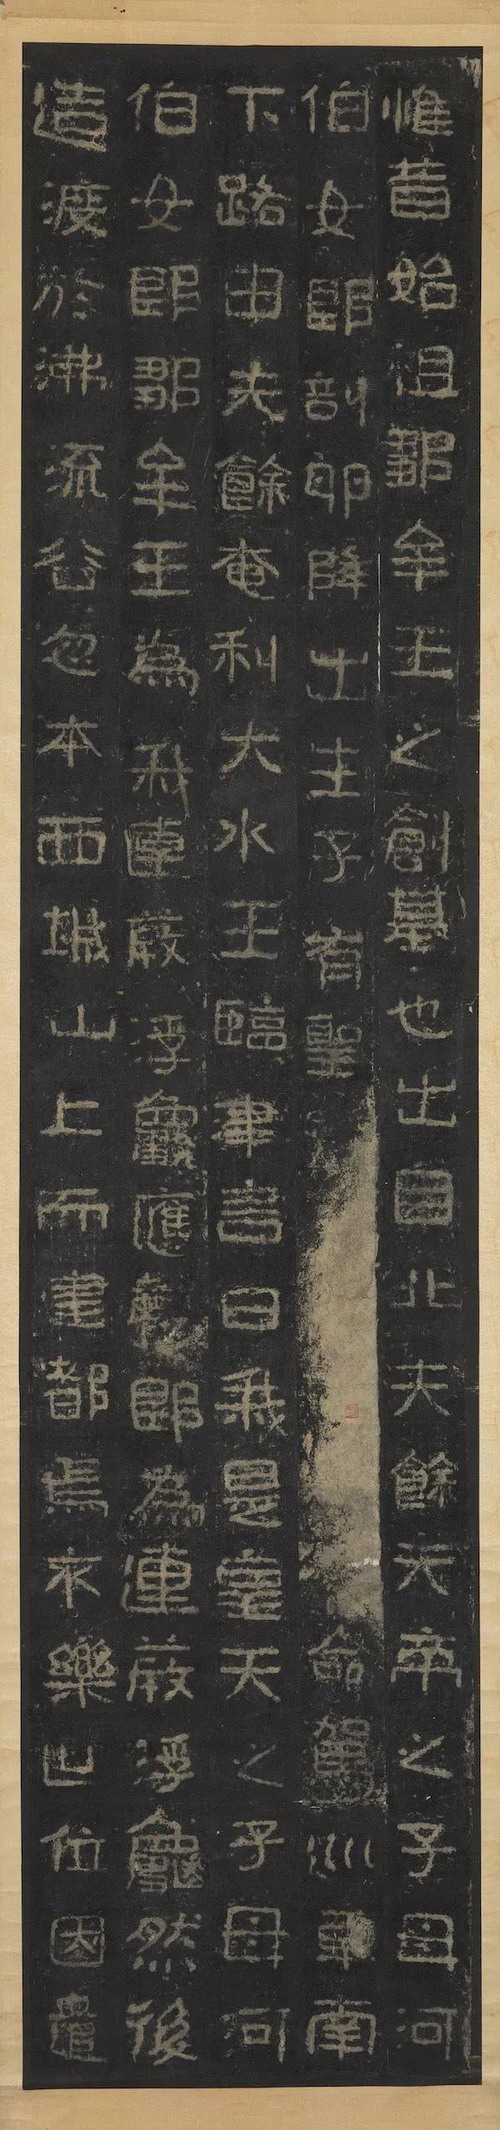 惟昔始祖鄒牟王之創基也出自北夫餘天帝之子母河
伯女郎剖卵降世生子有聖命駕巡車南
下路由夫餘奄利大水王臨津言曰我是皇天之子母河
伯女郎鄒牟王為我連葭浮龜應聲即為連葭浮龜然後
造渡於沸流谷忽本西城山上而建都焉不樂世位因遣